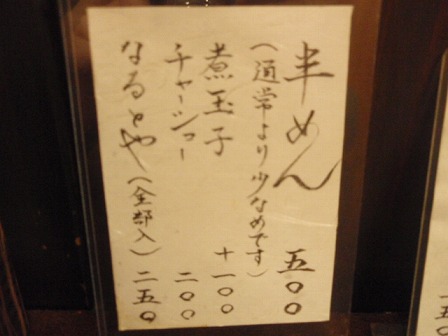 半めん 五〇〇
(通常より少なめです)
煮玉子 十一〇〇
チャーシュー 二〇〇
なるとや(全部入) 二五〇